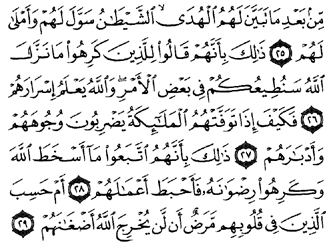 مِّنۢ بَعۡدِ مَا تَبَيَّنَ لَهُمُ ٱلۡهُدَى ٱلشَّيۡطَٰنُ سَوَّلَ لَهُمۡ وَأَمۡلَىٰ
لَهُمۡ ٢٥ ذَٰلِكَ بِأَنَّهُمۡ قَالُواْ لِلَّذِينَ كَرِهُواْ مَا نَزَّلَ
ٱللَّهُ سَنُطِيعُكُمۡ فِي بَعۡضِ ٱلۡأَمۡرِۖ وَٱللَّهُ يَعۡلَمُ إِسۡرَارَهُمۡ
٢٦ فَكَيۡفَ إِذَا تَوَفَّتۡهُمُ ٱلۡمَلَٰٓئِكَةُ يَضۡرِبُونَ وُجُوهَهُمۡ
وَأَدۡبَٰرَهُمۡ ٢٧ ذَٰلِكَ بِأَنَّهُمُ ٱتَّبَعُواْ مَآ أَسۡخَطَ ٱللَّهَ
وَكَرِهُواْ رِضۡوَٰنَهُۥ فَأَحۡبَطَ أَعۡمَٰلَهُمۡ ٢٨ أَمۡ حَسِبَ
ٱلَّذِينَ فِي قُلُوبِهِم مَّرَضٌ أَن لَّن يُخۡرِجَ ٱللَّهُ أَضۡغَٰنَهُمۡ ٢٩